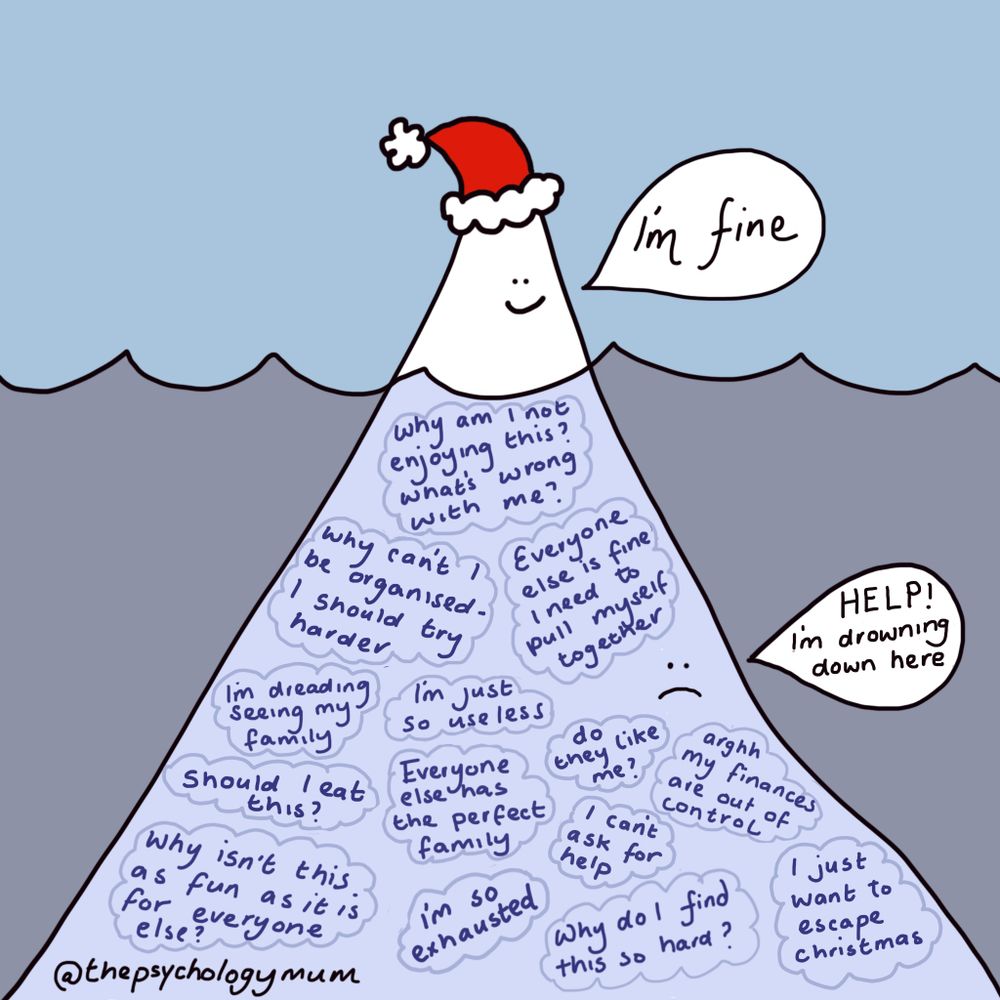 I'm fine
why am I not
enjoying this?
what's wrong
with me?
why can't I
be organised-
I should try
harder
Everyone
else is fine
I need to
pull myself
together
HELP!
I'm drowning
down here
I'm dreading
seeing my
family
I'm just
so useless
do
they like
me?
arghh
my finances
are out of
control
Should I eat
this?
Everyone
else has
the perfect
family
I can't
ask for
help
why isn't this
as fun as it is
for everyone
else?
i'm so
exhausted
why do I find
this so hard?
I just
want to
escape
christmas
@thepsychologymum